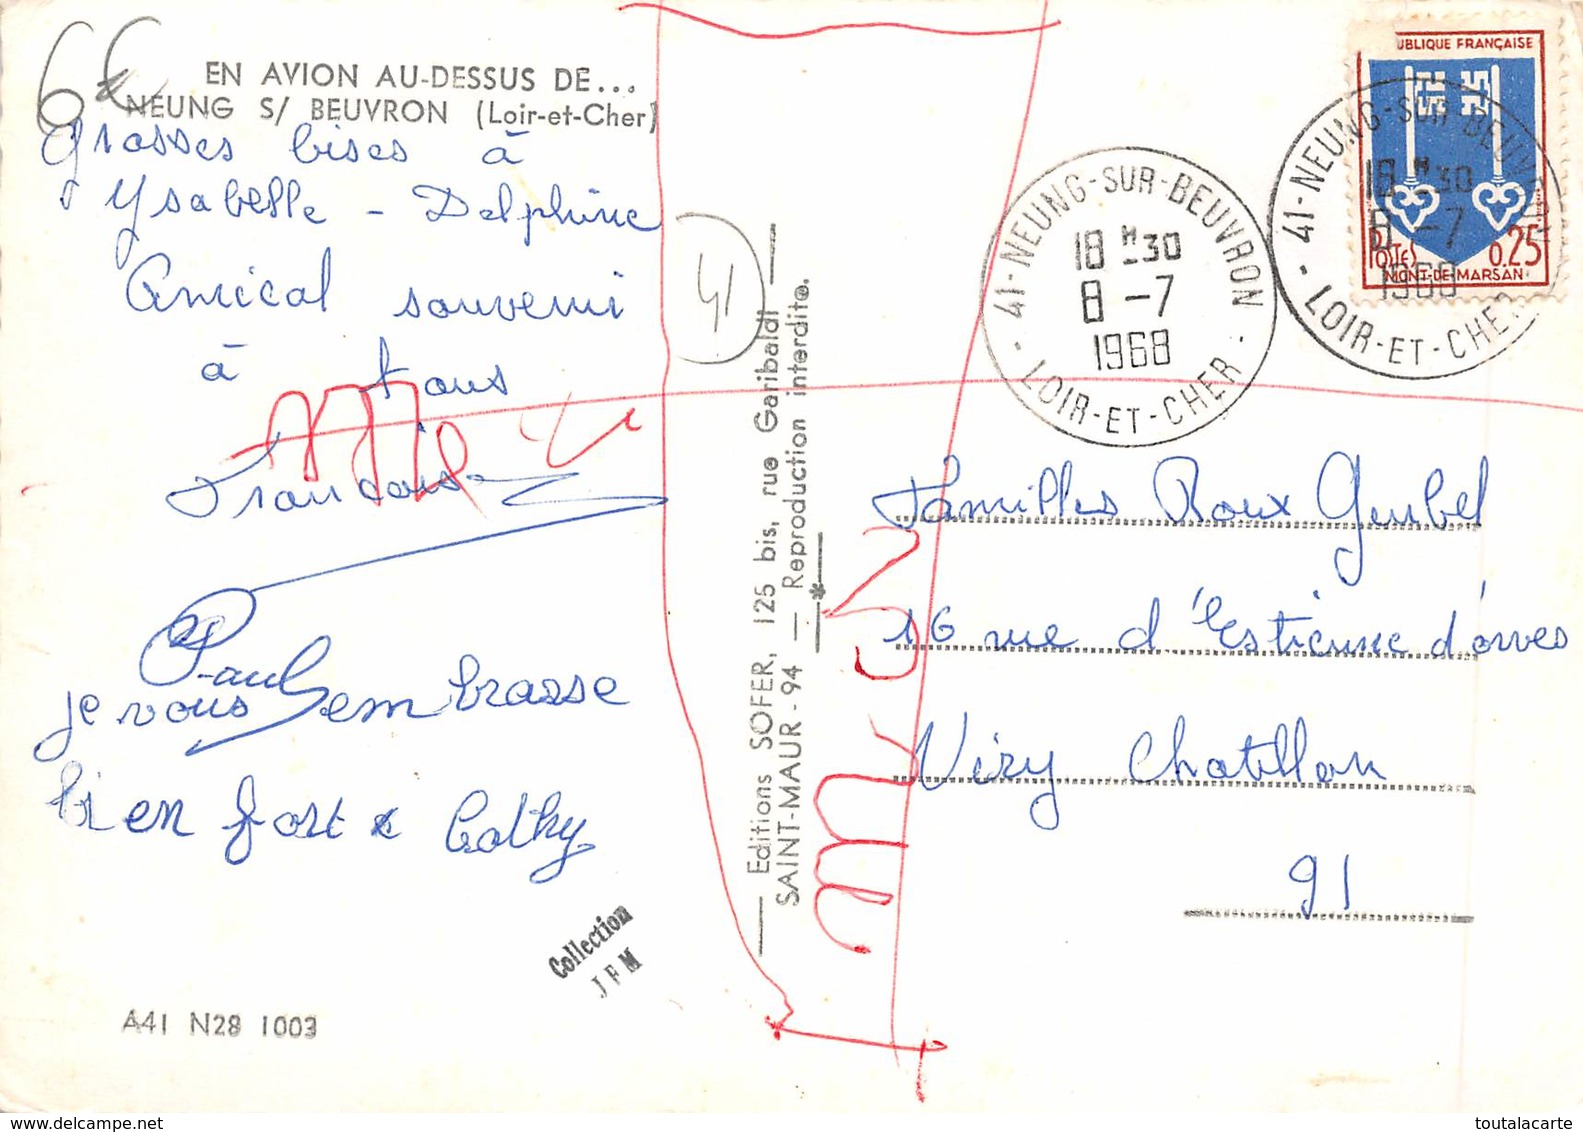 6€
EN AVION AU-DESSUS DE...
NEUNG S/ BEUVRON (Loir-et-Cher)
grosses bises à
Ysabelle - Delphine
Amical souvenir
à tous
Francoise
Paul
je vous embrasse
bien fort Cathy
Collection
JFM
A41 N28 1003
41
Editions SOFER, 125 bis, rue Garibaldi
SAINT-MAUR - 94 — Reproduction interdite.
41 - NEUNG-SUR-BEUVRON
18 H 30
8 - 7
1968
- LOIR-ET-CHER -
41 - NEUNG-SUR-BEUVRON
18 H 30
8 - 7
1968
- LOIR-ET-CHER
UBLIQUE FRANÇAISE
POSTES 0,25
MONT-DE-MARSAN
Familles Roux Gerbel
16 rue d'Estienne d'orves
Viry Chatillon
91
delcampe.net
toutalacarte